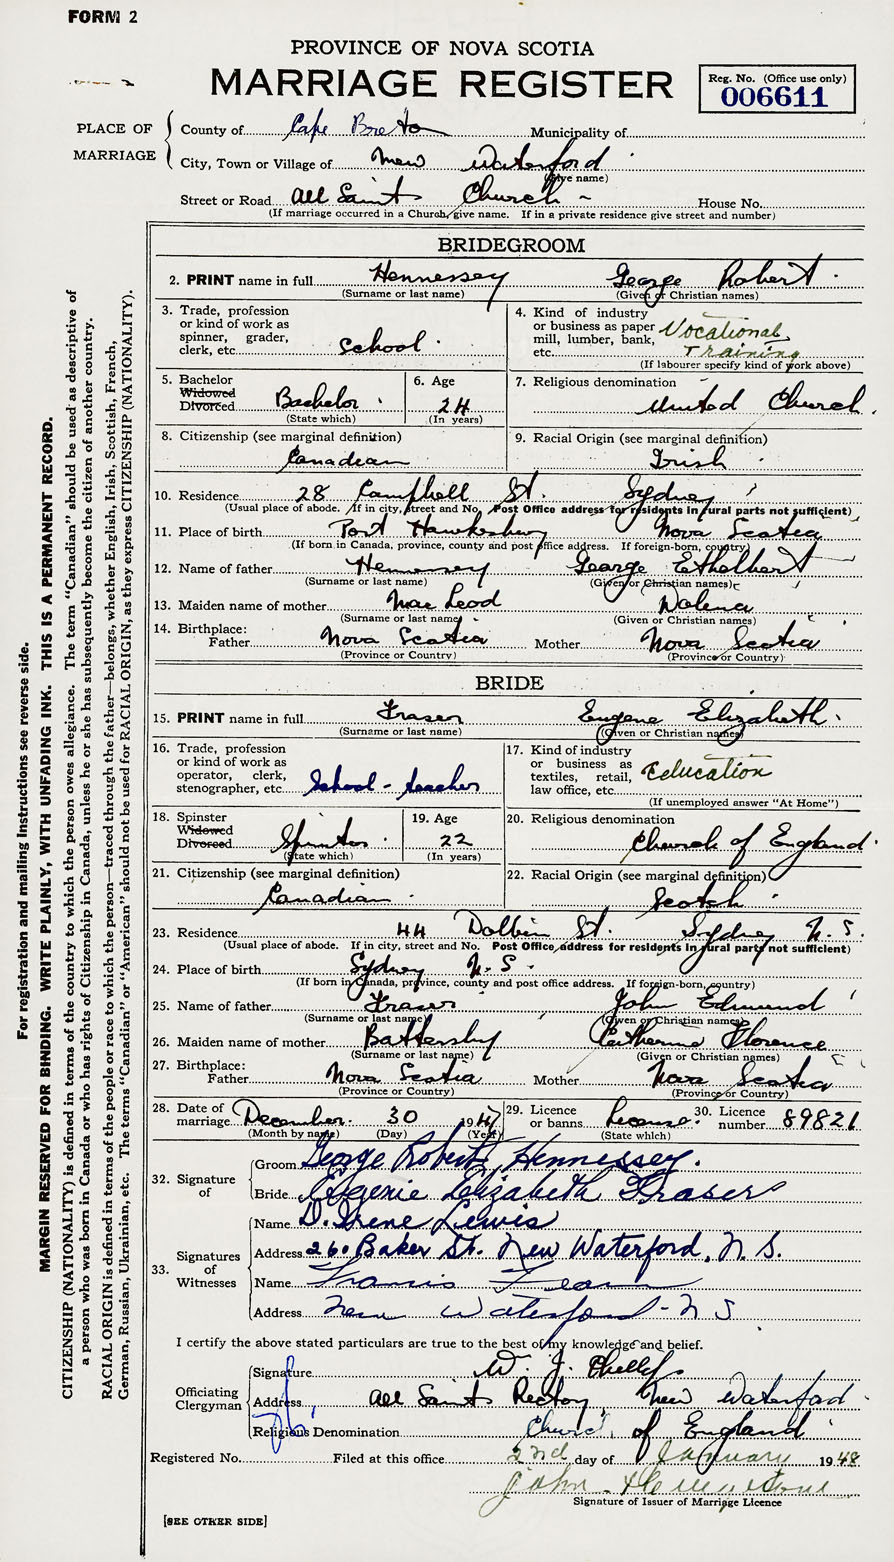 FORM 2
PROVINCE OF NOVA SCOTIA
MARRIAGE REGISTER
Reg. No. (Office use only)
006611
PLACE OF MARRIAGE
County of Cape Breton Municipality of
City, Town or Village of New Waterford
(Give name)
Street or Road All Saints Church House No.
(If marriage occurred in a Church, give name. If in a private residence give street and number)
BRIDEGROOM
2. PRINT name in full Hennessey George Robert
(Surname or last name) (Given or Christian names)
3. Trade, profession or kind of work as spinner, grader, clerk, etc. School
4. Kind of industry or business as paper mill, lumber, bank, etc. Vocational Training
(If labourer specify kind of work above)
5. Bachelor Widowed Divorced Bachelor
(State which)
6. Age 24
(In years)
7. Religious denomination United Church
8. Citizenship (see marginal definition) Canadian
9. Racial Origin (see marginal definition) Irish
10. Residence 28 Campbell St. Sydney
(Usual place of abode. If in city, street and No. Post Office address for residents in rural parts not sufficient)
11. Place of birth Port Hawkesbury Nova Scotia
(If born in Canada, province, county and post office address. If foreign-born, country)
12. Name of father Hennessey George Ethelbert
(Surname or last name) (Given or Christian names)
13. Maiden name of mother MacLeod Dolena
(Surname or last name) (Given or Christian names)
14. Birthplace:
Father Nova Scotia Mother Nova Scotia
(Province or Country) (Province or Country)
BRIDE
15. PRINT name in full Fraser Eugene Elizabeth
(Surname or last name) (Given or Christian names)
16. Trade, profession or kind of work as operator, clerk, stenographer, etc. School-teacher
17. Kind of industry or business as textiles, retail, law office, etc. Education
(If unemployed answer "At Home")
18. Spinster Widowed Divorced Spinster
(State which)
19. Age 22
(In years)
20. Religious denomination Church of England
21. Citizenship (see marginal definition) Canadian
22. Racial Origin (see marginal definition) Scotch
23. Residence 44 Dolbin St. Sydney N.S.
(Usual place of abode. If in city, street and No. Post Office address for residents in rural parts not sufficient)
24. Place of birth Sydney N.S.
(If born in Canada, province, county and post office address. If foreign-born, country)
25. Name of father Fraser John Edmund
(Surname or last name) (Given or Christian names)
26. Maiden name of mother Battersby Catherine Florence
(Surname or last name) (Given or Christian names)
27. Birthplace:
Father Nova Scotia Mother Nova Scotia
(Province or Country) (Province or Country)
28. Date of marriage December 30 1947
(Month by name) (Day) (Year)
29. Licence or banns License
(State which)
30. Licence number 89821
32. Signature of
Groom George Robert Hennessey.
Bride Eugenie Elizabeth Fraser
33. Signatures of Witnesses
Name D. Irene Lewis
Address 260 Baker St. New Waterford, N.S.
Name Francis
Address New Waterford - N S
I certify the above stated particulars are true to the best of my knowledge and belief.
Officiating Clergyman
Signature W. J.
Address All Saints Rectory New Waterford
Religious Denomination Church of England
Registered No. Filed at this office 2nd day of January 1948
John
Signature of Issuer of Marriage Licence
[SEE OTHER SIDE]
For registration and mailing instructions see reverse side.
MARGIN RESERVED FOR BINDING. WRITE PLAINLY, WITH UNFADING INK. THIS IS A PERMANENT RECORD.
CITIZENSHIP (NATIONALITY) is defined in terms of the country to which the person owes allegiance. The term "Canadian" should be used as descriptive of
a person who was born in Canada or who has rights of Citizenship in Canada, unless he or she has subsequently become the citizen of another country.
RACIAL ORIGIN is defined in terms of the people or race to which the person—traced through the father—belongs, whether English, Irish, Scottish, French,
German, Russian, Ukrainian, etc. The terms "Canadian" or "American" should not be used for RACIAL ORIGIN, as they express CITIZENSHIP (NATIONALITY).